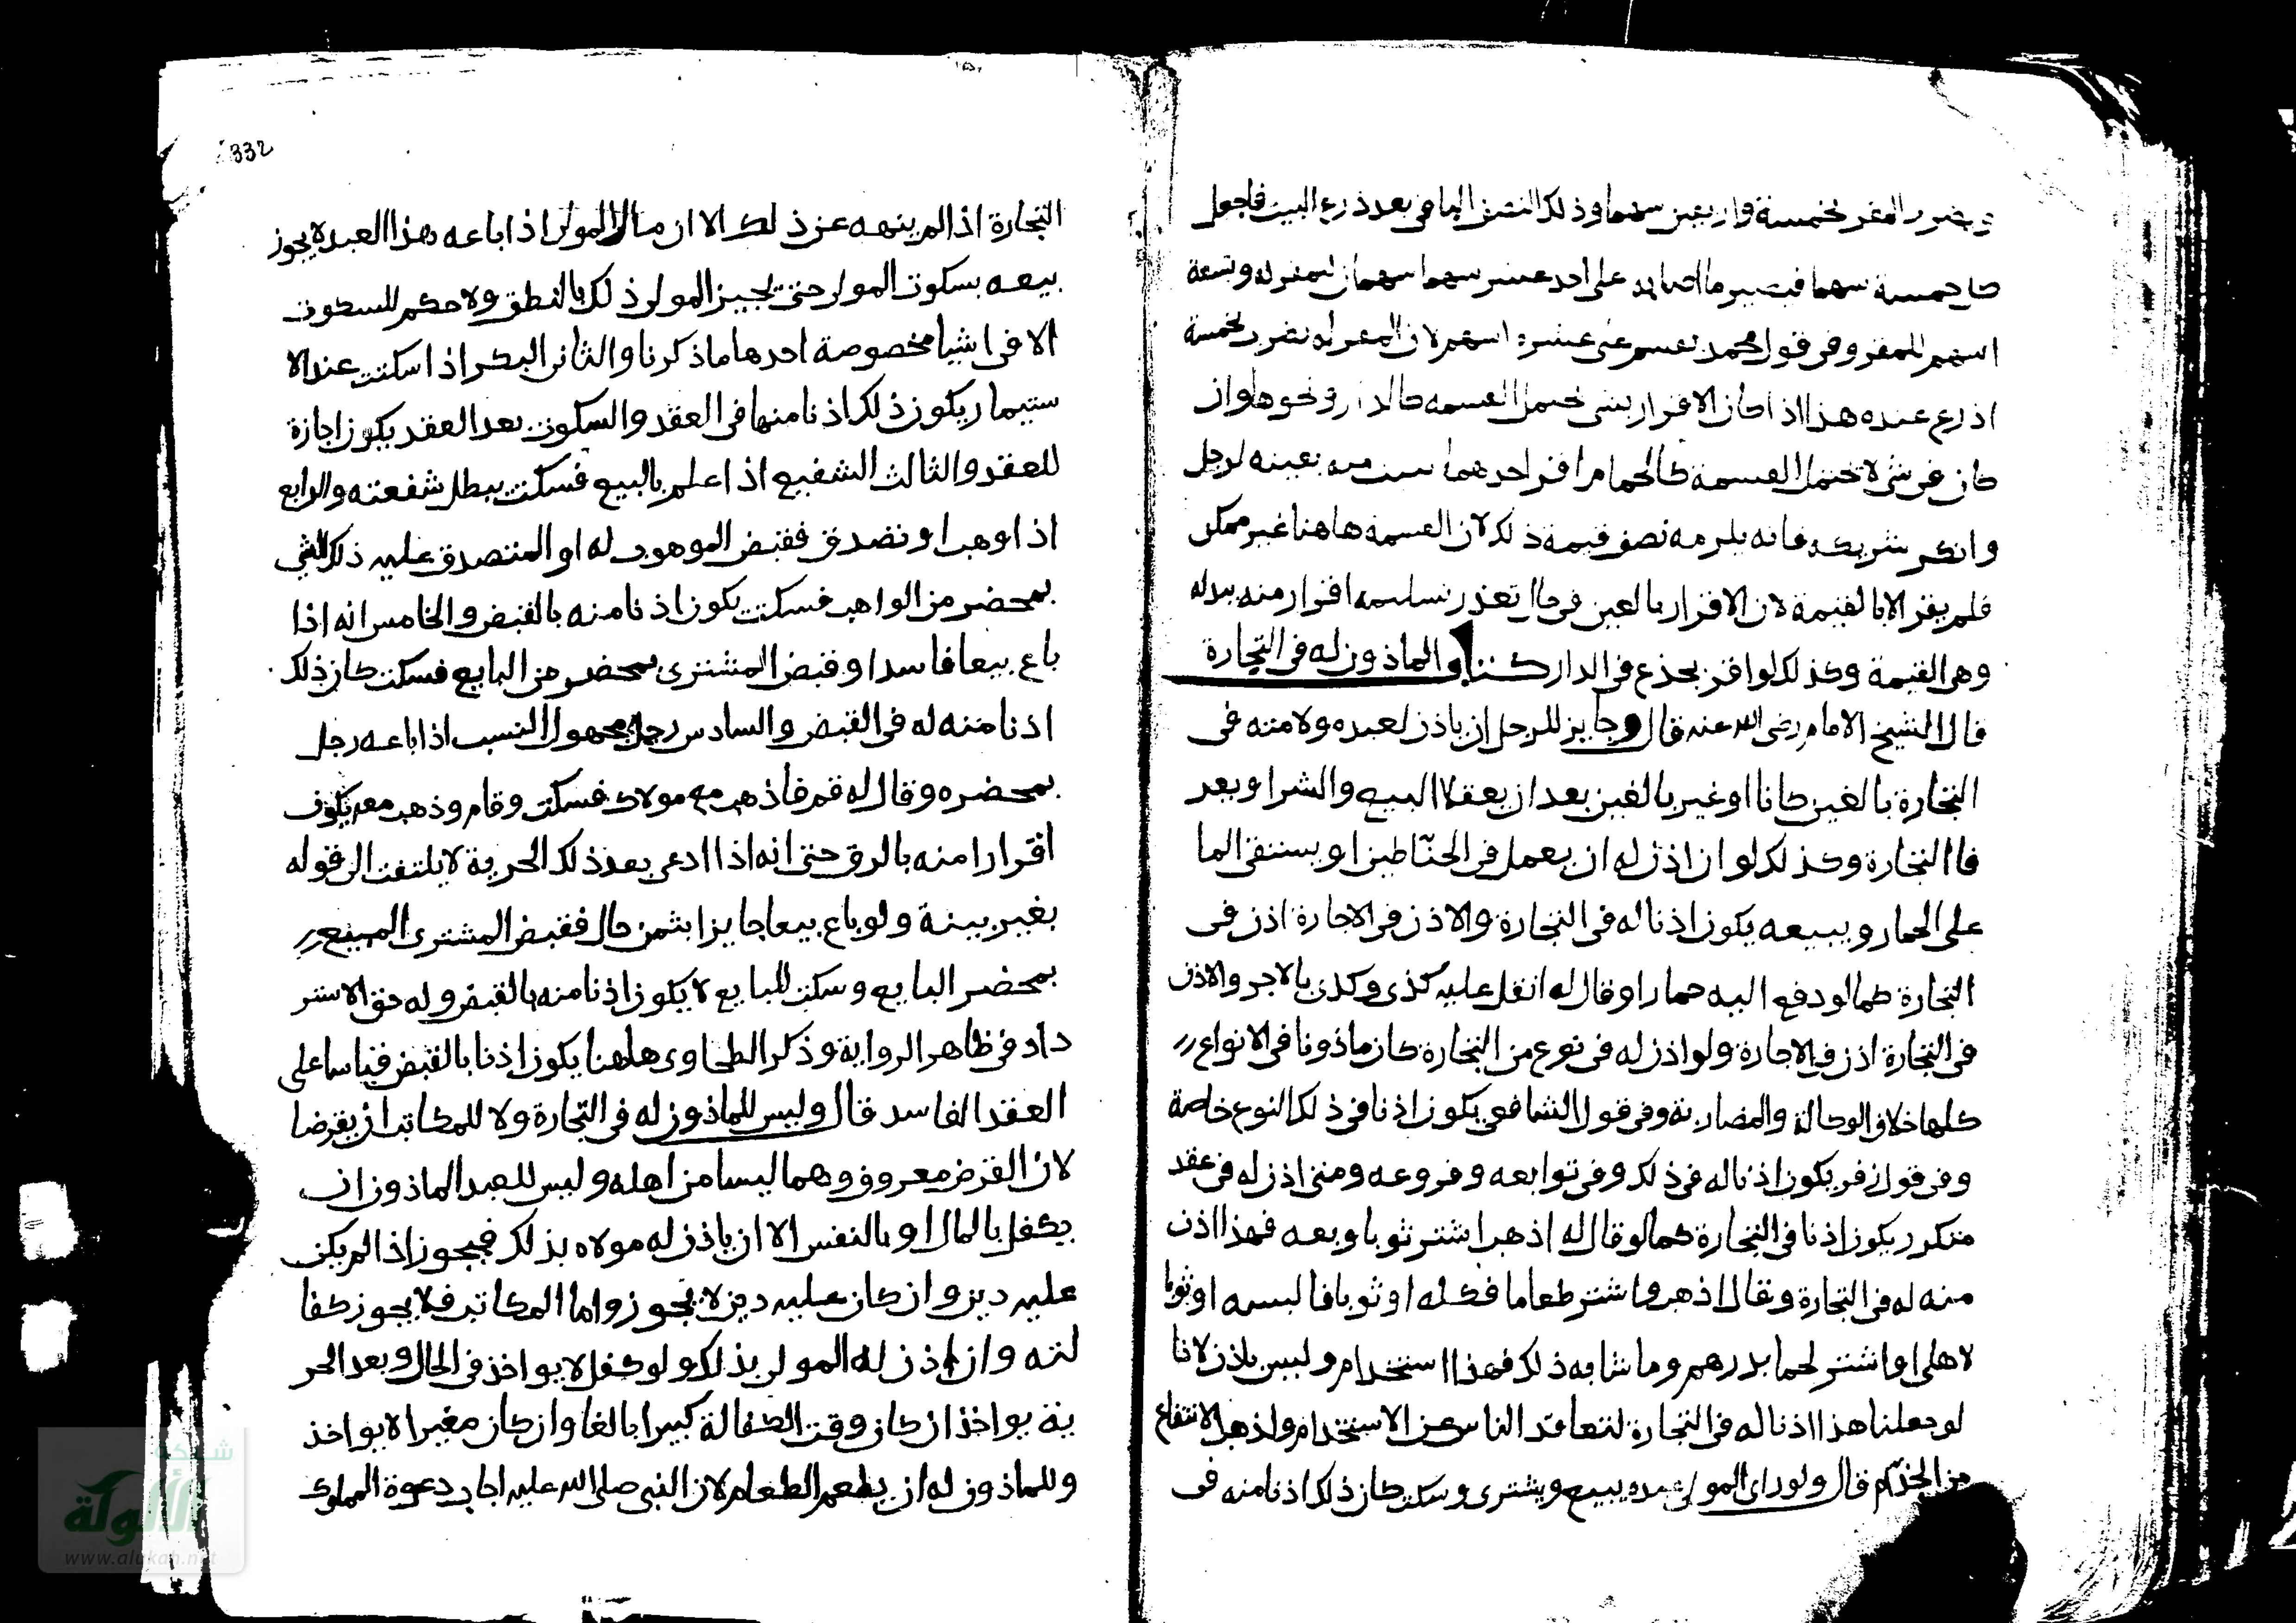 ويضرب المقر بخمسة واربعين سهما وذلك النصف الباقي بعد ذرع البيت فاجعل
كل خمسة سهما فيصير ما اصابه على احد عشر سهما سهمان للمقر له وتسعة
اسهم للمقر وفي قول محمد يقسم على عشرة اسهم لان المقر له يضرب بخمسة
اذرع عنده هذا اذا كان الاقرار بشي يحتمل القسمة كالدار ونحوها وان
كان في شي لا يحتمل القسمة كالحمام اقر احدهما ببيت منه بعينه لرجل
وانكر شريكه فانه يلزمه نصف قيمة ذلك لان القسمة هاهنا غير ممكن
فلم يقر الا بالقيمة لان الاقرار بالعين في حال تعذر تسليمه اقرار منه ببدله
وهي القيمة وكذلك لو اقر بجذع في الدار كتاب الماذون له في التجارة
قال الشيخ الامام رضي الله عنه قال وجايز للرجل ان ياذن لعبده ولامته في
التجارة بالغين كانا او غير بالغين بعد ان يعقلا البيع والشرا وبعد
فاالتجارة وكذلك لو ان اذن له ان يعمل في الحناطين او يستقي الما
على الحمار ويبيعه يكون اذنا له في التجارة والاذن في الاجارة اذن في
التجارة كما لو دفع اليه حمارا وقال له انقل عليه كذى وكذى بالاجر والاذن
في التجارة اذن في الاجارة ولو اذن له في نوع من التجارة كان ماذونا في الانواع
كلها خلاف الوكالة والمضاربة وفي قول الشافعي يكون اذنا في ذلك النوع خاصة
وفي قول زفر يكون اذنا له في ذلك وفي توابعه وفروعه ومتى اذن له في عقد
متكرر يكون اذنا في التجارة كما لو قال له اذهب اشتر ثوبا وبعه فهذا اذن
منه له في التجارة وقال اذهب واشتر طعاما فكله او ثوبا فالبسه او ثوبا
لاهلي او اشتر لحما بدرهم وما شابه ذلك فهذا استخدام وليس باذن لانا
لو جعلنا هذا اذنا له في التجارة لتقاعد الناس عن الاستخدام ولذهب الانتفاع
من الخدم قال ولو راى المولى عبده يبيع ويشترى وسكت كان ذلك اذنا منه في
332
التجارة اذا لم ينهه عن ذلك الا ان مال المولى اذا باعه هذا العبد لا يجوز
بيعه بسكوت المولى حتى يجيز المولى ذلك بالنطق ولا حكم للسكوت
الا في اشيا مخصوصة احدها ما ذكرنا والثاني البكر اذا سكتت عند الا
ستيمار يكون ذلك اذنا منها في العقد والسكوت بعد العقد يكون اجازة
للعقد والثالث الشفيع اذا علم بالبيع فسكت يبطل شفعته والرابع
اذا وهب او تصدق فقبض الموهوب له او المتصدق عليه ذلك الشي
بمحضر من الواهب فسكت يكون اذنا منه بالقبض والخامس انه اذا
باع بيعا فاسدا وقبض المشترى بمحضر من البايع فسكت كان ذلك
اذنا منه له في القبض والسادس رجل مجهول النسب اذا باعه رجل
بمحضره وقال له قم فاذهب مع مولاك فسكت وقام وذهب معه يكون
اقرارا منه بالرق حتى انه اذا ادعى بعد ذلك الحرية لا يلتفت الى قوله
بغير بينة ولو باع بيعا جايزا بثمن حال فقبض المشترى المبيع
بمحضر البايع وسكت البايع لا يكون اذنا منه بالقبض وله حق الاستر
داد في ظاهر الرواية وذكر الطحاوى هاهنا يكون اذنا بالقبض قياسا على
العقد الفاسد قال وليس للماذون له في التجارة ولا للمكاتب ان يقرضا
لان القرض معروف وهما ليسا من اهله وليس للعبد الماذون ان
يكفل بالمال او بالنفس الا ان ياذن له مولاه بذلك فيجوز اذا لم يكن
عليه دين وان كان عليه دين لا يجوز واما المكاتب فلا يجوز كفا
لته وان اذن له المولى بذلك ولو كفل لا يواخذ في الحال وبعد الحر
ية يواخذ ان كان وقت الكفالة كبيرا بالغا وان كان صغيرا لا يواخذ
وللماذون له ان يطعم الطعام لان النبي صلى الله عليه اجاب دعوة المملوك
شبكة
الألوكة
www.alukah.net